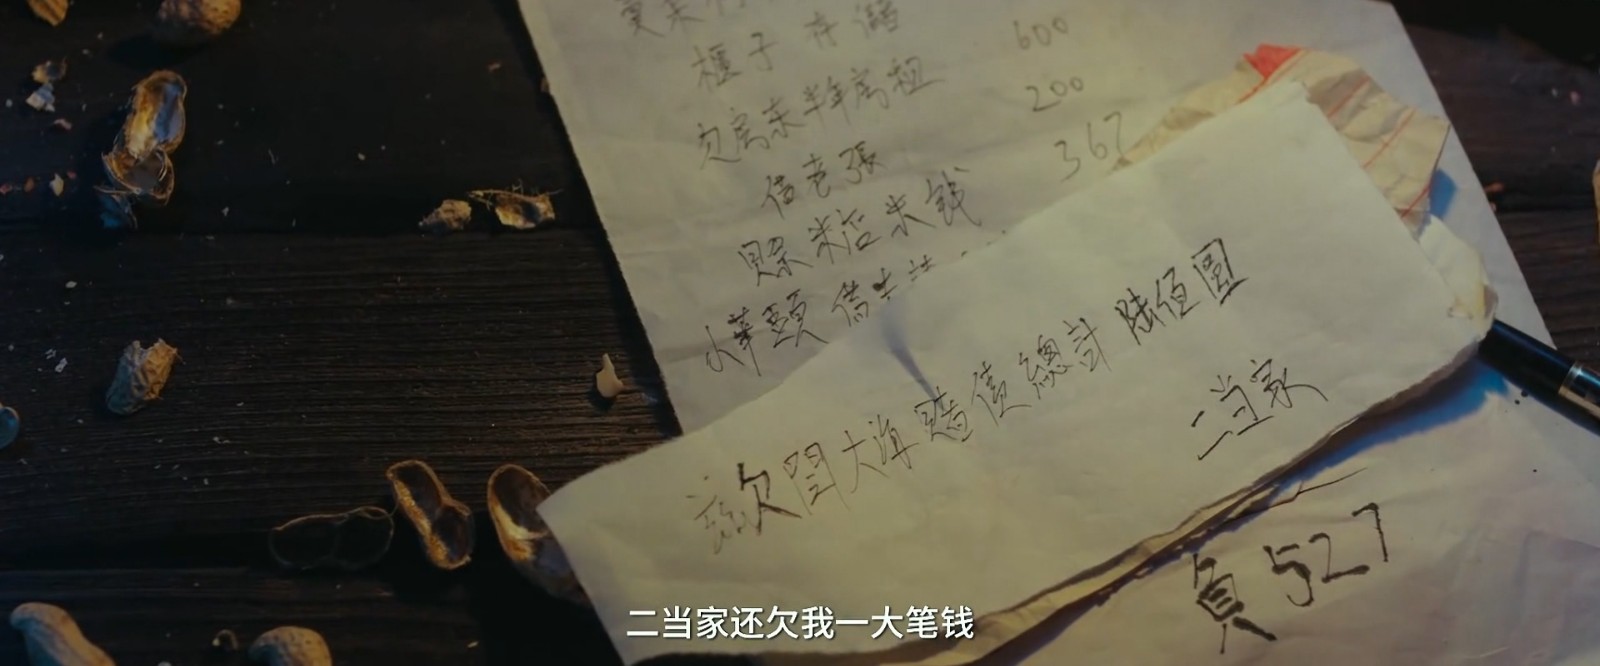 櫃子 存儲 600
欠房東半年房租 200
借老張 367
賒米店米钱
小華頭 借
茲欠閆大海賭債總計陸佰圓
二当家
負527
二当家还欠我一大笔钱